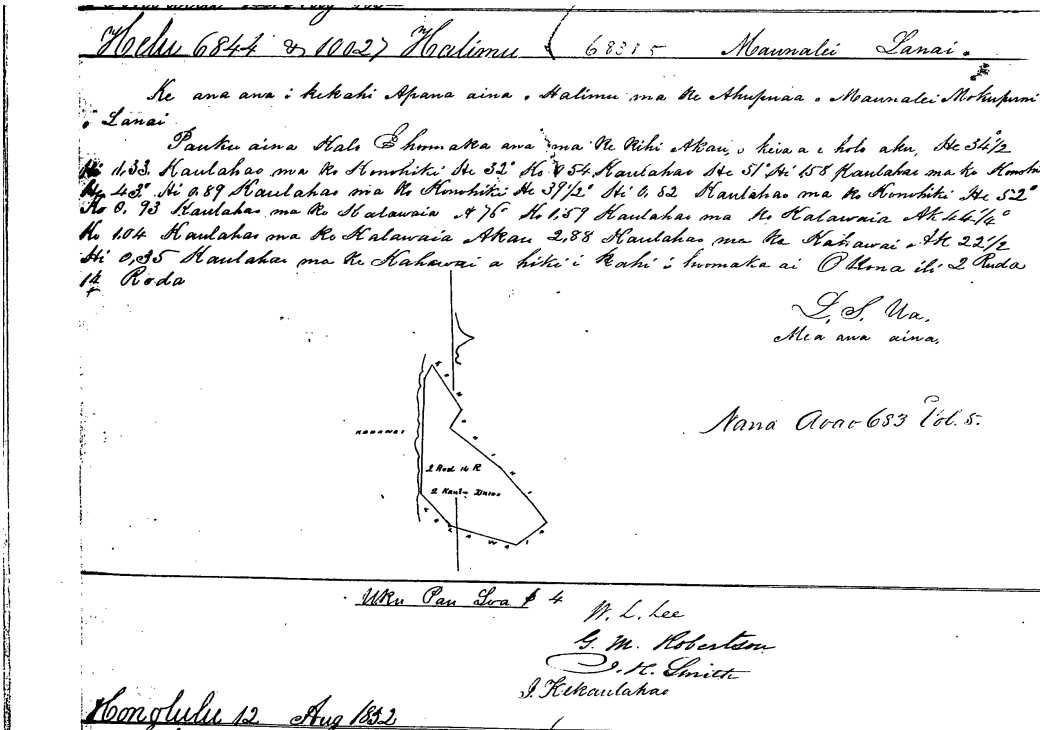 Helu 6844 & 10027 Halimu ( 6838 5 Maunalei Lanai.
Ke ana ana i kekahi Apana aina o Halimu ma ke Ahupuaa o Maunalei Mokupuni
o Lanai
Pauku aina Kalo E hoomaka ana ma ke kihi Akau, o keia a e holo aku, He 34 1/2
Hi 1,33 Kaulahao ma ko Konohiki He 32° Ko 0,54 Kaulahao He 51° Hi 1.58 Kaulahao ma ko Konohiki
He 43° Hi 0,89 Kaulahao ma ko Konohiki He 39 1/2° Hi 0,82 Kaulahao ma ko Konohiki He 52°
Ko 0,93 Kaulahao ma ko Kalawaia A 76° Ko 1,59 Kaulahao ma ko Kalawaia Ak 44 1/4°
Ko 1.04 Kaulahao ma ko Kalawaia Akau 2,88 Kaulahao ma ke Kahawai. Ak 22 1/2
Hi 0,35 Kaulahao ma ke Kahawai a hiki i kahi i hoomaka ai O kona ili 2 Ruda
14 Roda
L. S. Ua,
Mea ana aina,
Nana Aoao 653 Vol. 5.
KONOHIKI
KAHAWAI
2 Rud 14 R
KALAWAIA
Uku Pau Loa $ 4
W. L. Lee
G. M. Robertson
J. H. Smith
J. Kekaulahao
Honolulu 12 Aug 1852